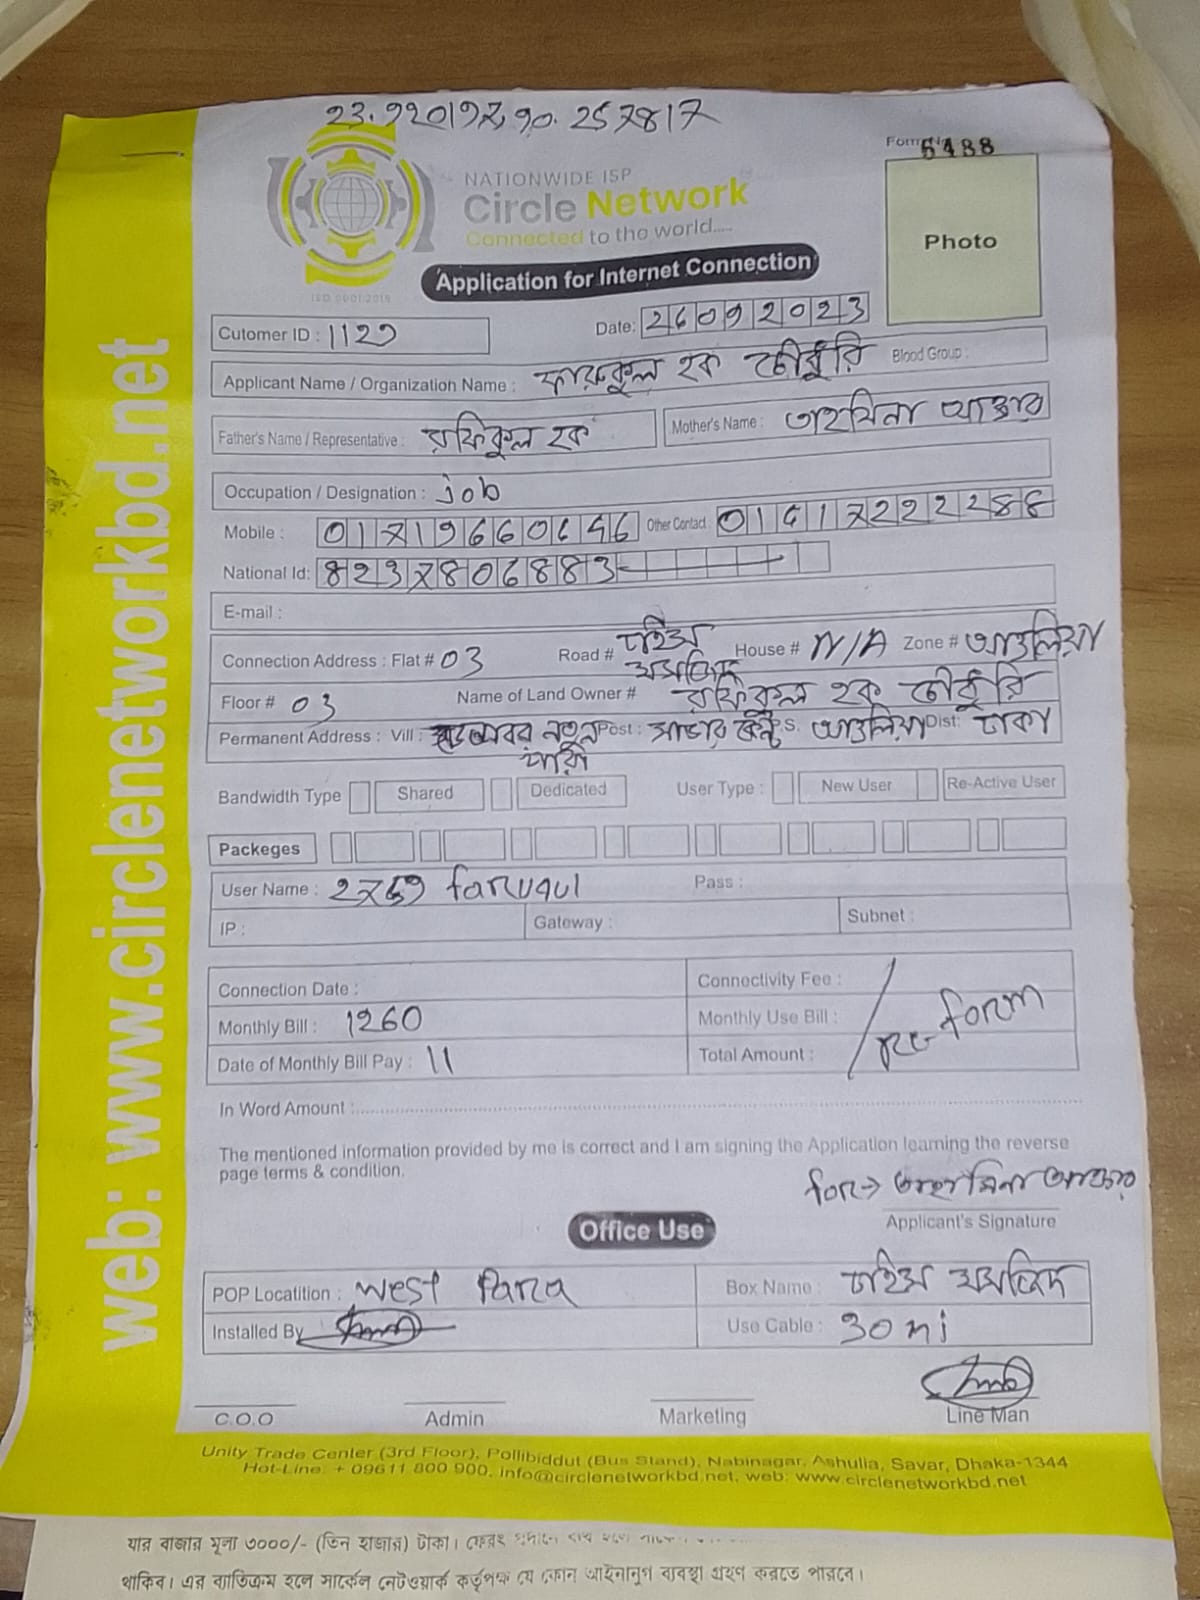 NATIONWIDE ISP
Circle Network
Connected to the world.....
Form No 5488
Photo
Application for Internet Connection
ISO 9001:2015
Cutomer ID : 1129
Date: 26092023
Applicant Name / Organization Name : ফারুকুল হক চৌধুরি Blood Group :
Father's Name / Representative : রফিকুল হক Mother's Name : তাহমিনা আক্তার
Occupation / Designation : job
Mobile : Other Contact :
National Id:
E-mail :
Connection Address : Flat # 03 Road # মসজিদ House # N/A Zone # আশুলিয়া
Floor # 03 Name of Land Owner # রফিকুল হক চৌধুরি
Permanent Address : Vill : নতুন পাড়া Post : সাভার P.S. আশুলিয়া Dist: ঢাকা
Bandwidth Type Shared Dedicated User Type : New User Re-Active User
Packeges
User Name : faruqul Pass :
IP : Gateway : Subnet :
Connection Date : Connectivity Fee :
Monthly Bill : 1260 Monthly Use Bill :
Date of Monthly Bill Pay : 11 Total Amount :
re-form
In Word Amount :
The mentioned information provided by me is correct and I am signing the Application learning the reverse
page terms & condition.
for→ তাহমিনা আক্তার
Applicant's Signature
Office Use
POP Locatition : West Para Box Name : মসজিদ
Installed By Use Cable : 30 mi
C.O.O Admin Marketing Line Man
Unity Trade Center (3rd Floor), Pollibiddut (Bus Stand), Nabinagar, Ashulia, Savar, Dhaka-1344
Hot-Line: + 09611 800 900, info@circlenetworkbd.net, web: www.circlenetworkbd.net
web: www.circlenetworkbd.net
যার বাজার মূল্য ৩০০০/- (তিন হাজার) টাকা। ফেরৎ
থাকিব। এর ব্যতিক্রম হলে সার্কেল নেটওয়ার্ক কর্তৃপক্ষ যে কোন আইনানুগ ব্যবস্থা গ্রহণ করতে পারবে।